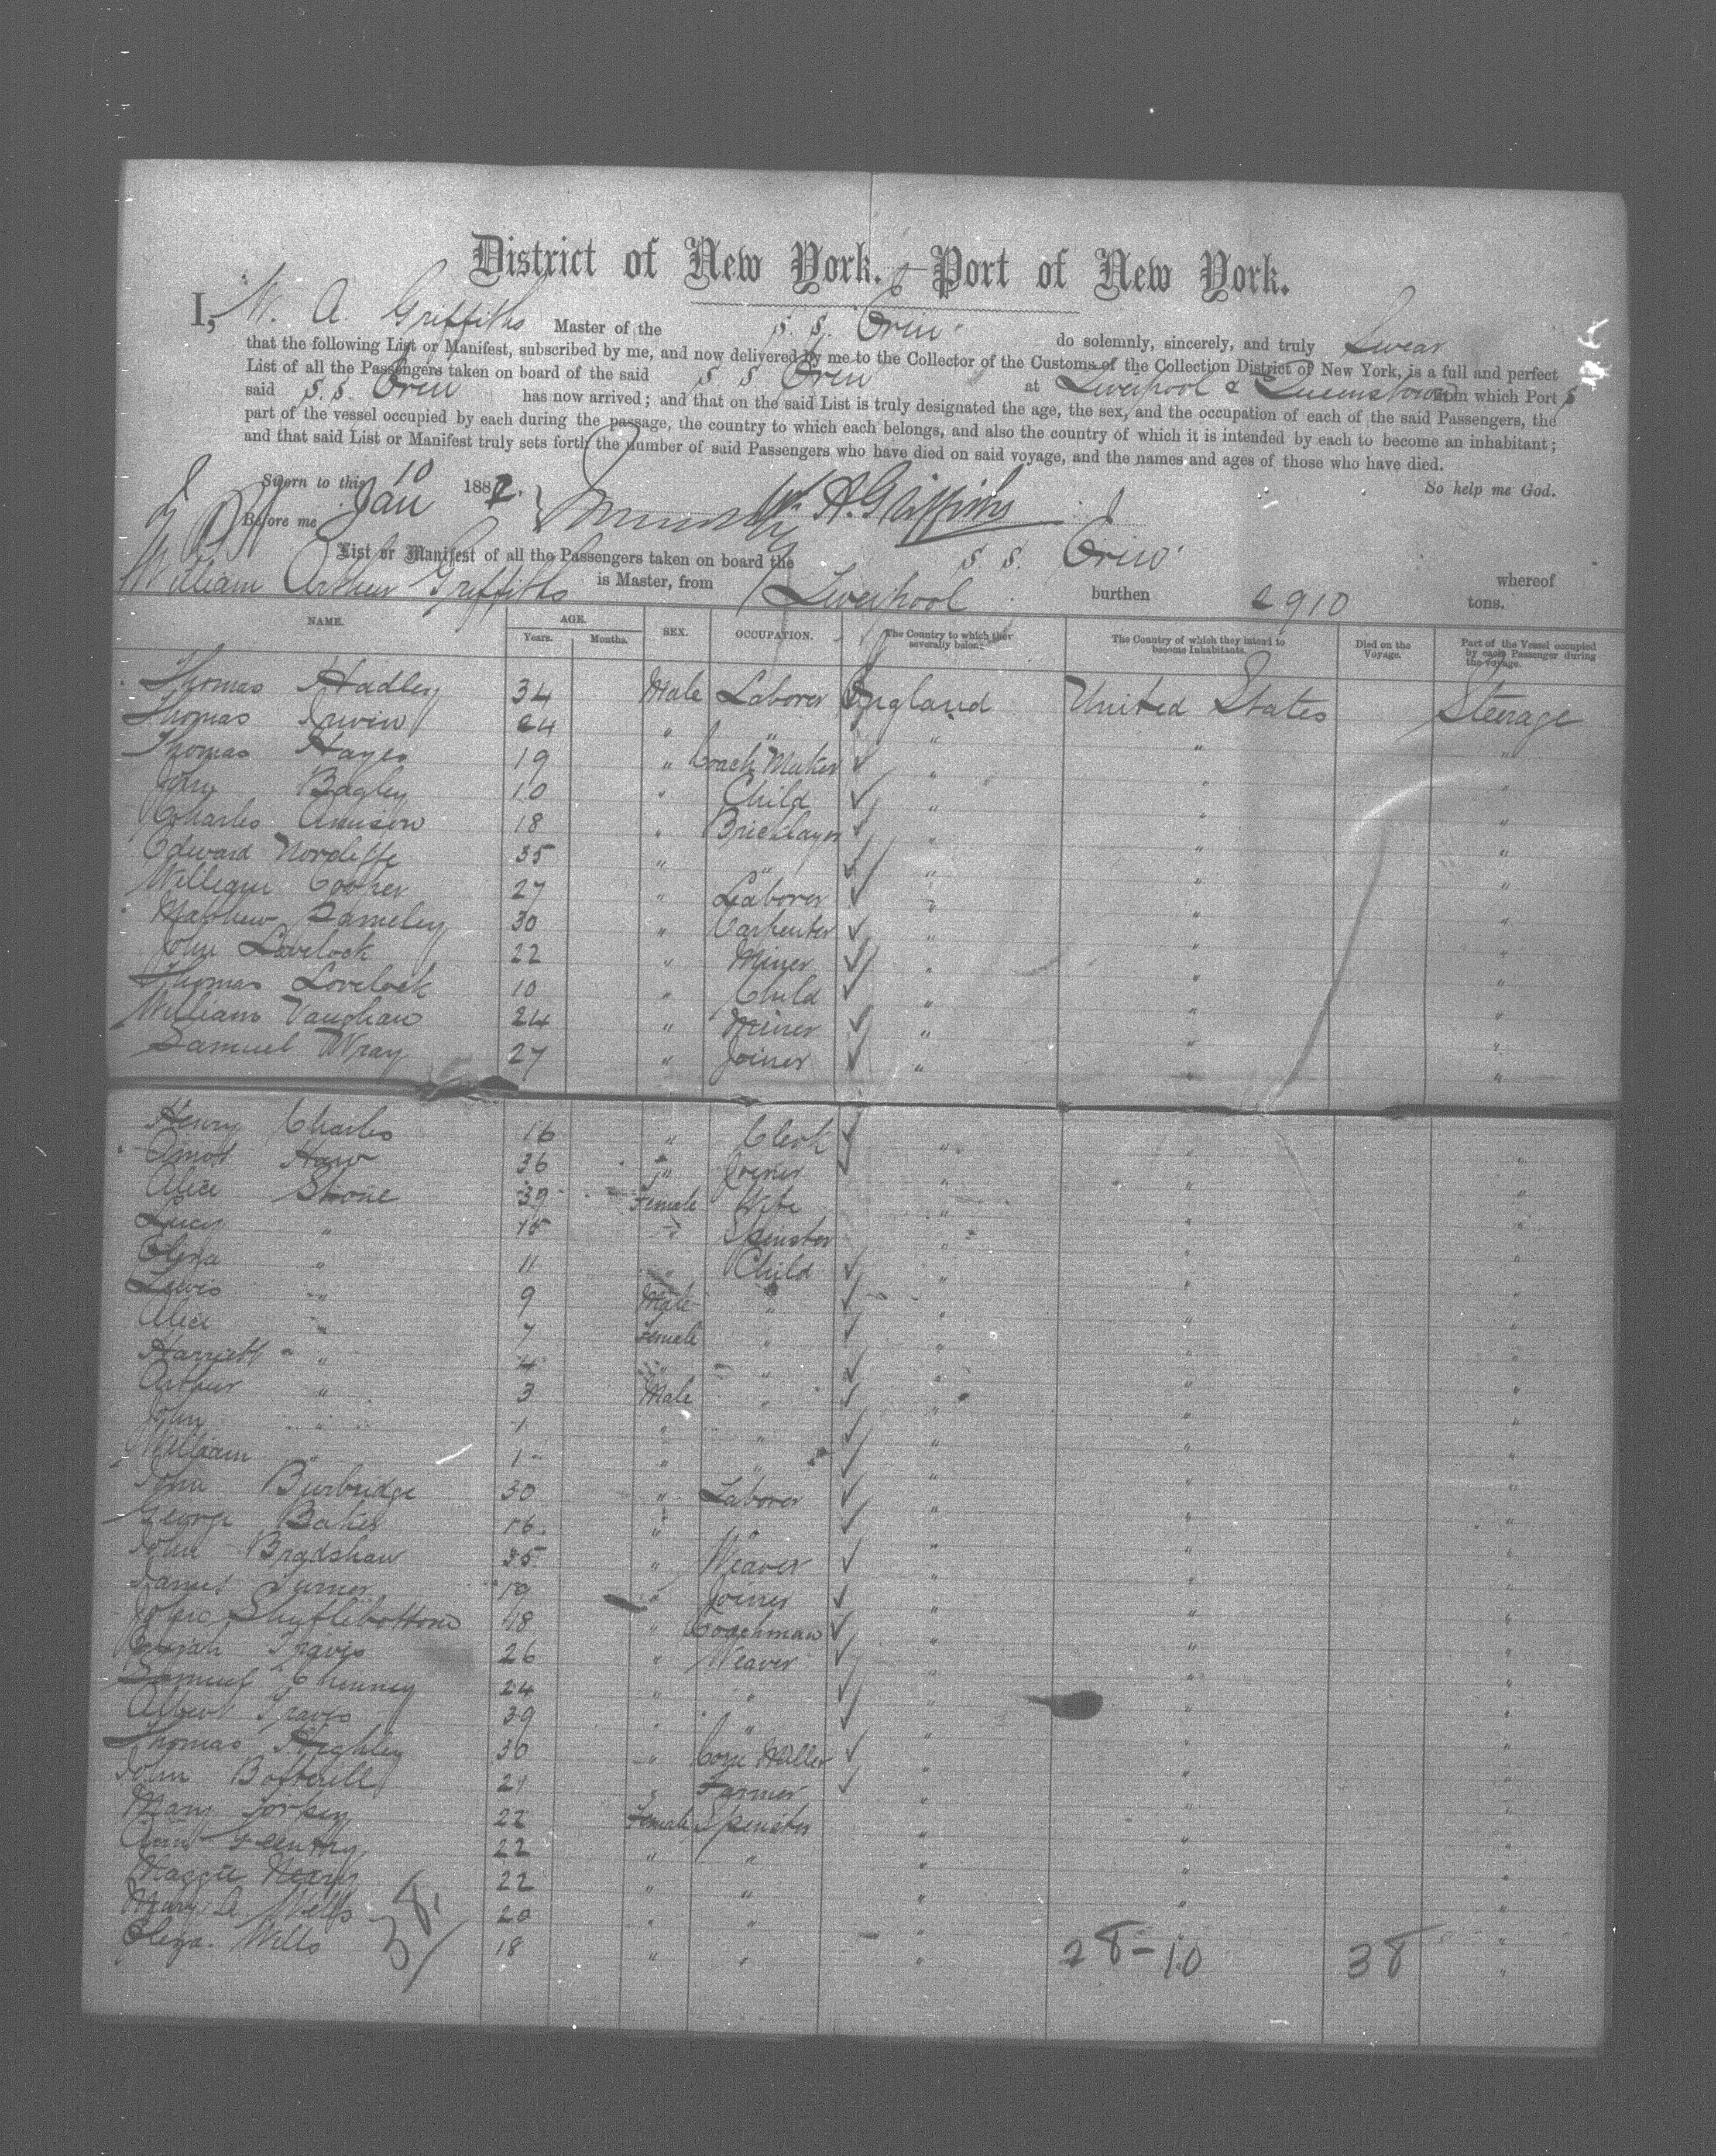 District of New York.—Port of New York.
I, W. A. Griffiths Master of the S. S. Erin do solemnly, sincerely, and truly Swear
that the following List or Manifest, subscribed by me, and now delivered by me to the Collector of the Customs of the Collection District of New York, is a full and perfect
List of all the Passengers taken on board of the said S S Erin at Liverpool & Queenstown from which Port s
said S. S. Erin has now arrived; and that on the said List is truly designated the age, the sex, and the occupation of each of the said Passengers, the
part of the vessel occupied by each during the passage, the country to which each belongs, and also the country of which it is intended by each to become an inhabitant;
and that said List or Manifest truly sets forth the number of said Passengers who have died on said voyage, and the names and ages of those who have died.
Sworn to this 10 Jan 1882. So help me God.
Before me W. A. Griffiths
List or Manifest of all the Passengers taken on board the S. S. Erin whereof
William Arthur Griffiths is Master, from Liverpool burthen 2910 tons.
NAME. AGE. SEX. OCCUPATION. The Country to which they severally belong. The Country of which they intend to become Inhabitants. Died on the Voyage. Part of the Vessel occupied by each Passenger during the voyage.
Years. Months.
Thomas Hadley 34 Male Laborer England United States Steerage
Thomas Irwin 24 " " " " "
Thomas Hayes 19 " Coach Maker " " "
John Bagley 10 " Child " " "
Charles 18 " Bricklayer " " "
Edward Norcliffe 35 " " " " "
William Cooper 27 " Laborer " " "
Matthew Sameley 30 " Carpenter " " "
John Lovelock 22 " Miner " " "
Thomas Lovelock 10 " Child " " "
William Vaughan 24 " Miner " " "
Samuel Wray 27 " Joiner " " "
Henry Charles 16 " Clerk " " "
Amos Haw 36 " Joiner " " "
Alice Stone 39 Female Wife " " "
Lucy " 15 " Spinster " " "
Eliza " 11 " Child " " "
Lewis " 9 Male " " " "
Alice " 7 Female " " " "
Harriett " 4 " " " " "
Arthur " 3 Male " " " "
John " 1 " " " " "
William " 1 " " " " "
John Burbridge 30 " Laborer " " "
George Baker 16 " " " " "
John Bradshaw 35 " Weaver " " "
James Turner 19 " Joiner " " "
John Shufflebottom 18 " Coachman " " "
Elijah Travis 26 " Weaver " " "
Samuel 24 " " " " "
Albert Travis 39 " " " " "
Thomas Highley 30 " Corn Miller " " "
John Botterill 21 " Farmer " " "
Mary Torpey 22 Female Spinster " " "
Ann 22 " " " " "
Maggie Neary 22 " " " " "
Mary A. Wells 20 " " " " "
Eliza. Wells 18 " " " " "
38 28-10 38